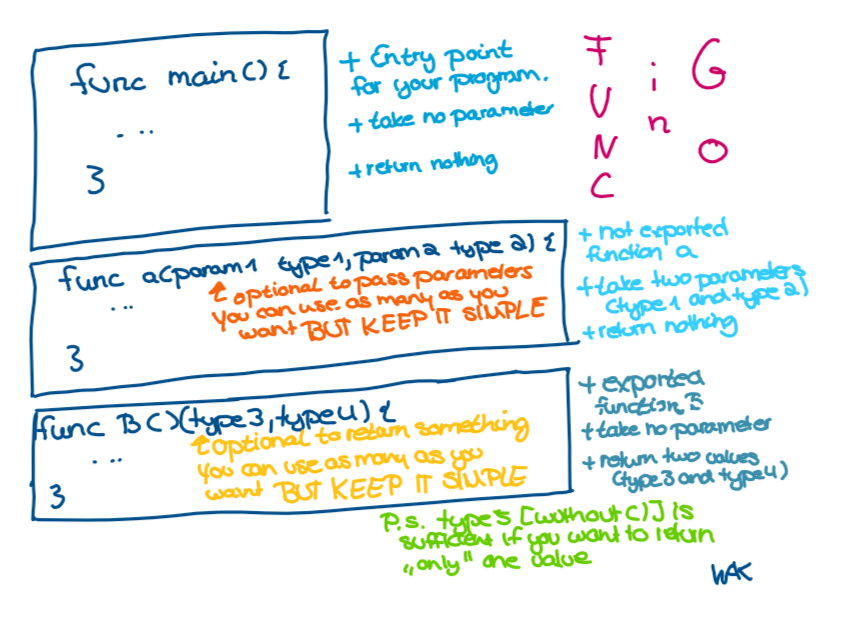 func main() {
...
}
+ Entry point
for your program.
+ take no parameter
+ return nothing
FUNC
in
GO
func a(param1 type1, param2 type2) {
↑ optional to pass parameters
You can use as many as you
want BUT KEEP IT SIMPLE
...
}
+ not exported
function a
+ take two parameters
(type1 and type2)
+ return nothing
func B()(type3, type4) {
↑ optional to return something
You can use as many as you
want BUT KEEP IT SIMPLE
...
}
+ exported
function B
+ take no parameter
+ return two values
(type3 and type4)
P.s. type3 [without ()] is
sufficient if you want to return
„only" one value